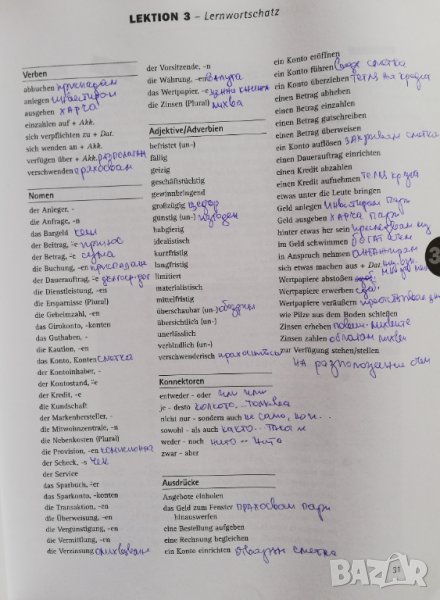 LEKTION 3 – Lernwortschatz
Verben
abbuchen
anlegen инвестирам
ausgeben харча
einzahlen auf + Akk.
sich verpflichten zu + Dat.
sich wenden an + Akk.
verfügen über + Akk.
verschwenden прахосвам
Nomen
der Anleger, -
die Anfrage, -n
das Bargeld кеш
der Beitrag, -̈e принос
der Betrag, -̈e сума
die Buchung, -en
der Dauerauftrag, -̈e
die Dienstleistung, -en
die Ersparnisse (Plural)
die Geheimzahl, -en
das Girokonto, -konten
das Guthaben, -
die Kaution, -en
das Konto, Konten сметка
der Kontoinhaber, -
der Kontostand, -̈e
der Kredit, -e
die Kundschaft
der Markenhersteller, -
die Mitwohnzentrale, -n
die Nebenkosten (Plural)
die Provision, -en комисионна
der Scheck, -s чек
der Service
das Sparbuch, -̈er
das Sparkonto, -konten
die Transaktion, -en
die Überweisung, -en
die Vergünstigung, -en
die Vermittlung, -en
die Verzinsung олихвяване
der Vorsitzende, -n
die Währung, -en валута
das Wertpapier, -e ценни книжа
die Zinsen (Plural) лихва
Adjektive/Adverbien
befristet (un-)
fällig
geizig
geschäftstüchtig
gewinnbringend
großzügig щедър
günstig (un-) изгоден
habgierig
idealistisch
kurzfristig
langfristig
limitiert
materialistisch
mittelfristig
überschaubar (un-)
übersichtlich (un-)
unerlässlich
verbindlich (un-)
verschwenderisch
Konnektoren
entweder - oder или или
je - desto колкото...толкова
nicht nur - sondern auch не само, но и...
sowohl - als auch както... така и
weder - noch нито - нито
zwar - aber
Ausdrücke
Angebote einholen
das Geld zum Fenster прахосвам пари
hinauswerfen
eine Bestellung aufgeben
eine Rechnung begleichen
ein Konto einrichten отварям сметка
ein Konto eröffnen
ein Konto führen водя сметка
ein Konto überziehen
einen Betrag abheben
einen Betrag einzahlen
einen Betrag gutschreiben
einen Betrag überweisen
ein Konto auflösen закривам сметка
einen Dauerauftrag einrichten
einen Kredit abzahlen
einen Kredit aufnehmen тегля кредит
etwas unter die Leute bringen
Geld anlegen инвестирам пари
Geld ausgeben харча пари
hinter etwas her sein
im Geld schwimmen
in Anspruch nehmen
sich etwas machen aus + Dat.
Wertpapiere abstoßen
Wertpapiere erwerben
Wertpapiere veräußern
wie Pilze aus dem Boden schießen
Zinsen erheben
Zinsen zahlen
zur Verfügung stehen/stellen
на разположение съм
3
31
BAZAR